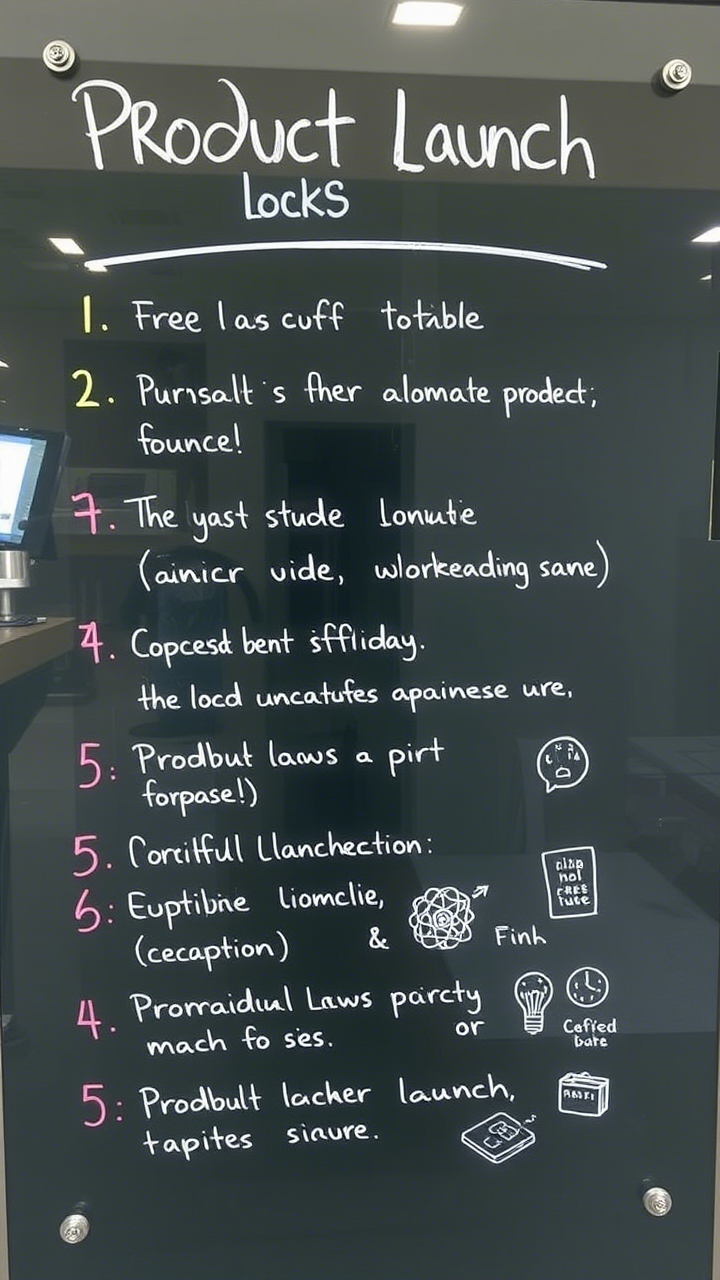 Product Launch
Locks
1. Free las cuff totable
2. Purnsalt's fher alomate prodect;
founce!
7. The yast stude Lonutie
(ainicr vide, wlorkeading sane)
4. Copcesd bent iffliday.
the locd uncatufes apainese ure,
5: Prodbut laows a pirt
forpase!)
5. Corcilful Llanchection:
6: Euptibine liomclie,
(cecaption) & Finh
4. Promraidiul Laws paircty
mach fo sies. or
Ceffed
bare
5: Prodbult lacher launch,
tapites siaure.